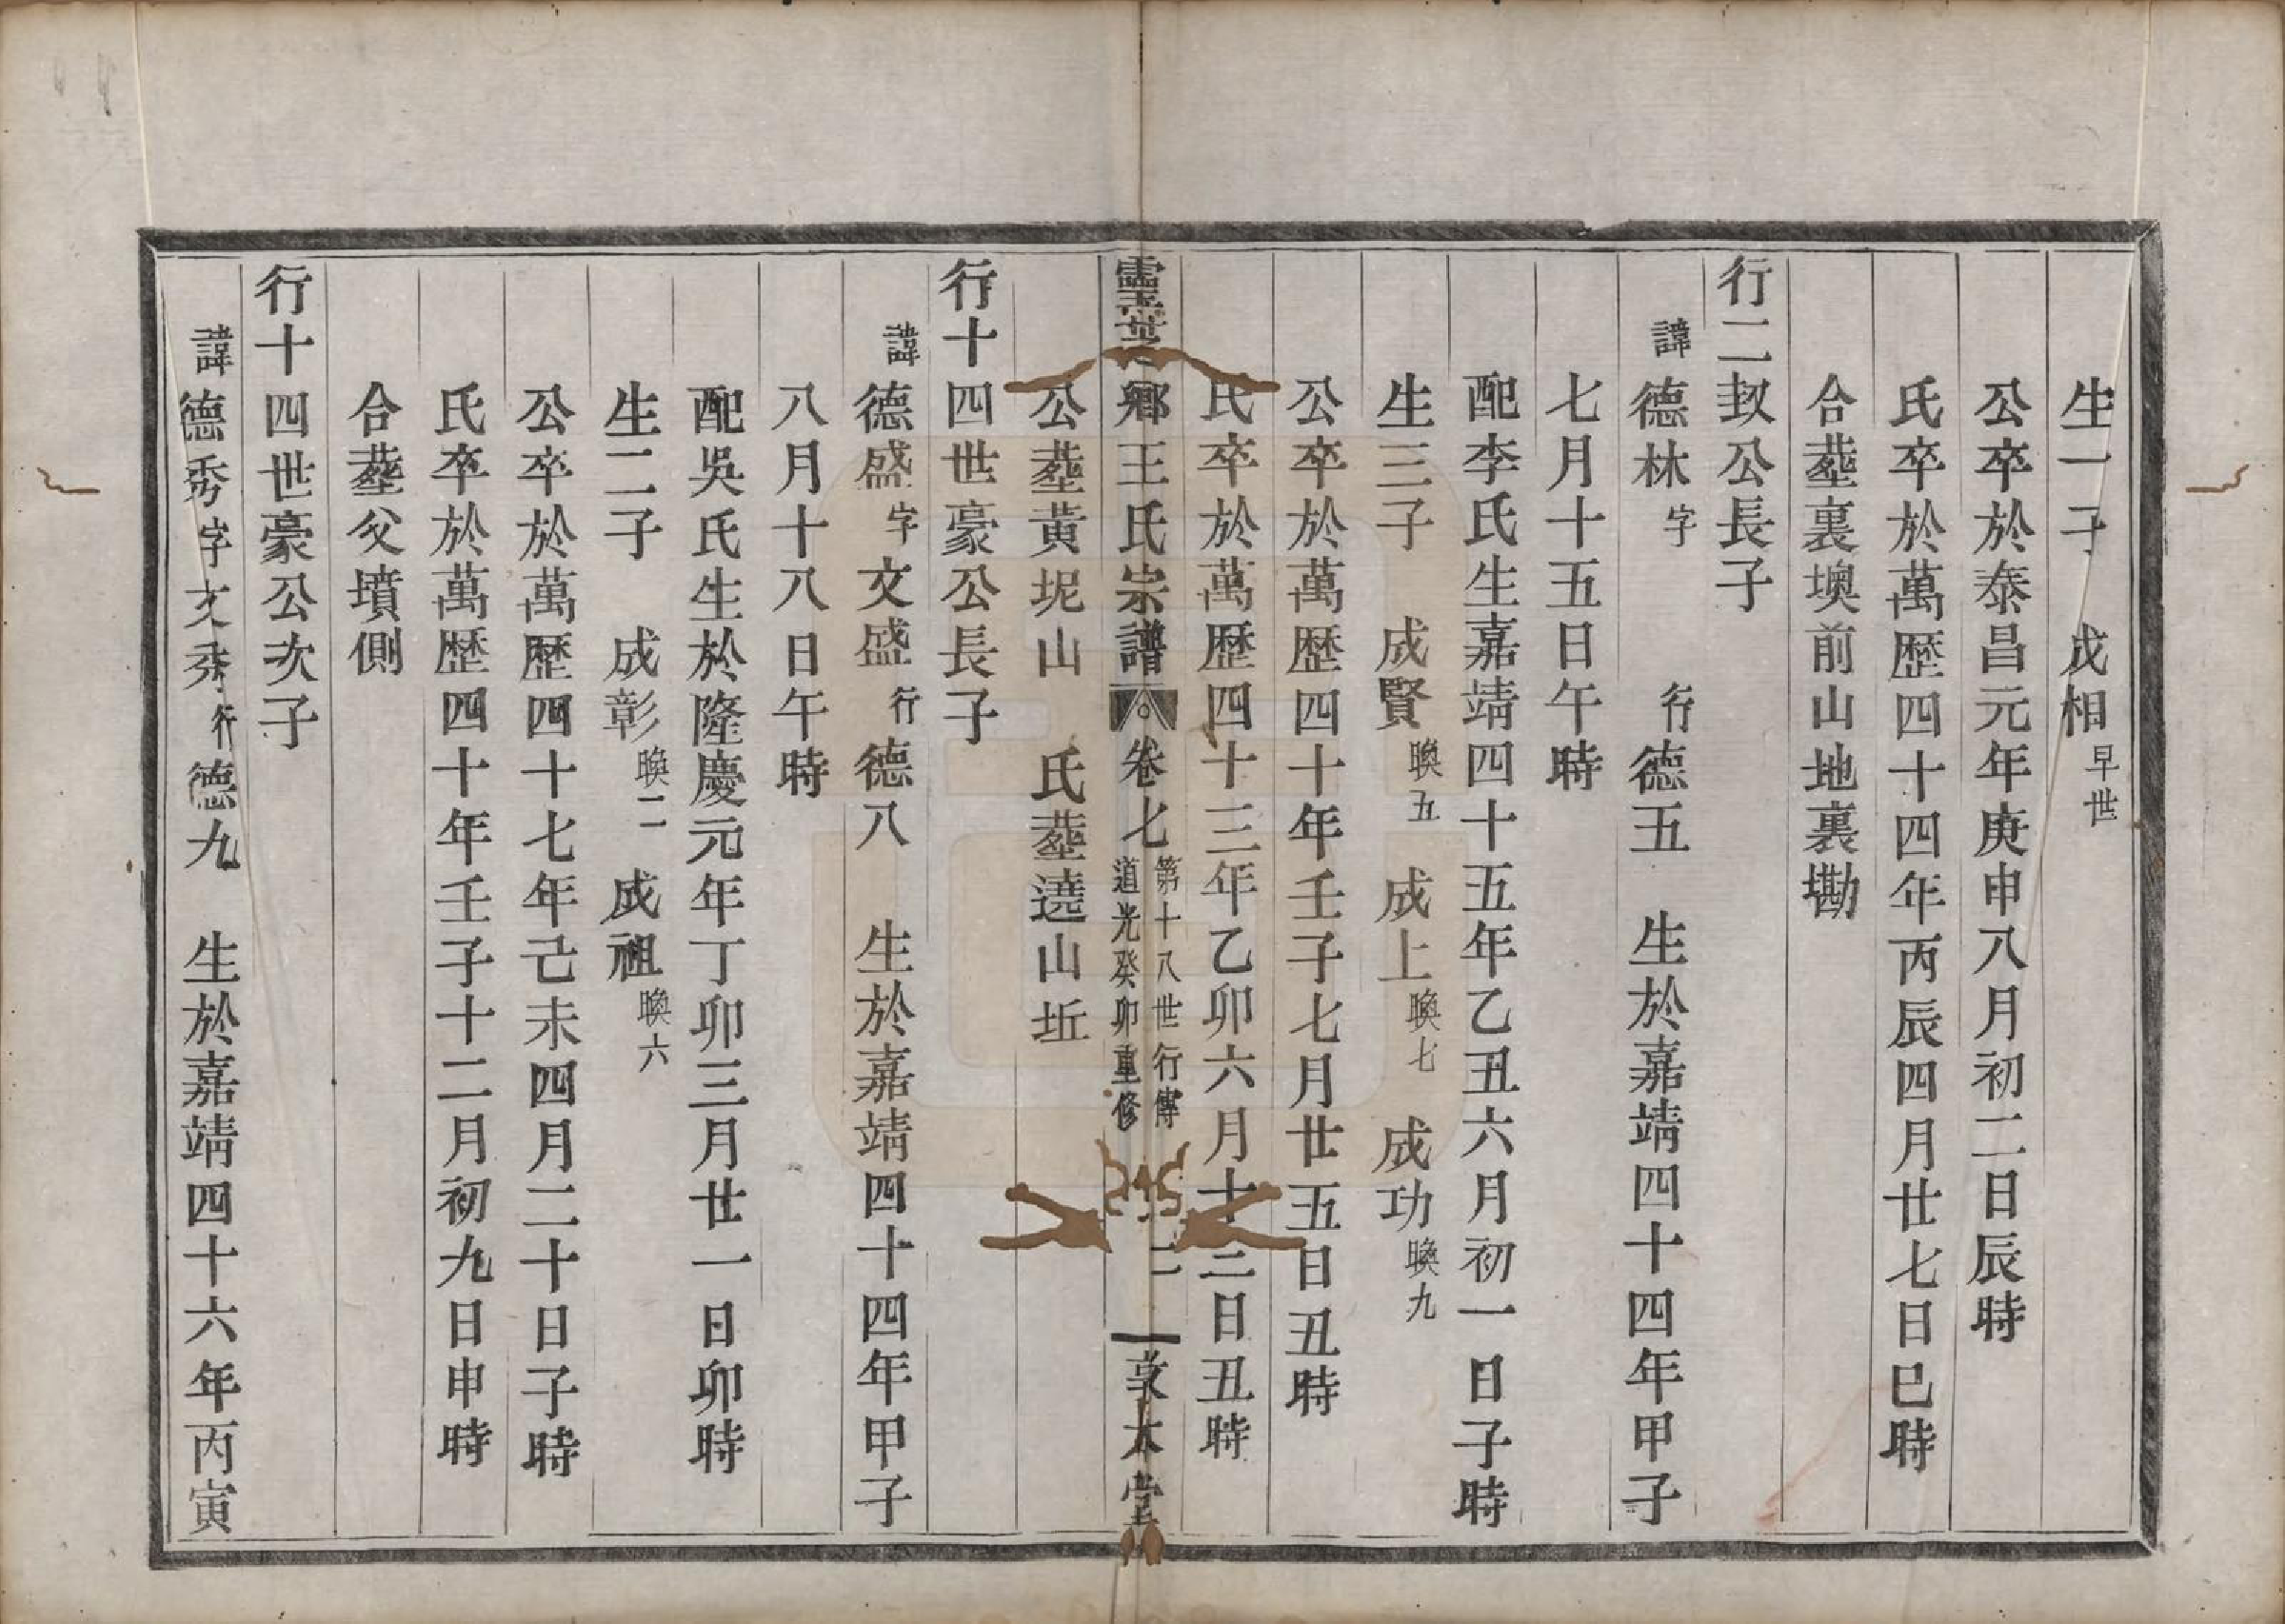 生一子　成相早世
公卒於泰昌元年庚申八月初二日辰時
氏卒於萬歷四十四年丙辰四月廿七日巳時
合塟裏墺前山地裏磡
行二敖公長子
諱德林字　行德五　生於嘉靖四十四年甲子
七月十五日午時
配李氏生嘉靖四十五年乙丑六月初一日子時
生三子　成賢喚五　成上喚七　成功喚九
公卒於萬歷四十年壬子七月廿五日丑時
氏卒於萬歷四十三年乙卯六月十二日丑時
鄉王氏宗譜　卷七　第十八世行傳　道光癸卯重修　二　敦本堂
公塟黃坭山　氏塟遶山坵
行十四世豪公長子
諱德盛字文盛行德八　生於嘉靖四十四年甲子
八月十八日午時
配吳氏生於隆慶元年丁卯三月廿一日卯時
生二子　成彰喚二　成祖喚六
公卒於萬歷四十七年己未四月二十日子時
氏卒於萬歷四十年壬子十二月初九日申時
合塟父墳側
行十四世豪公次子
諱德秀字文秀行德九　生於嘉靖四十六年丙寅